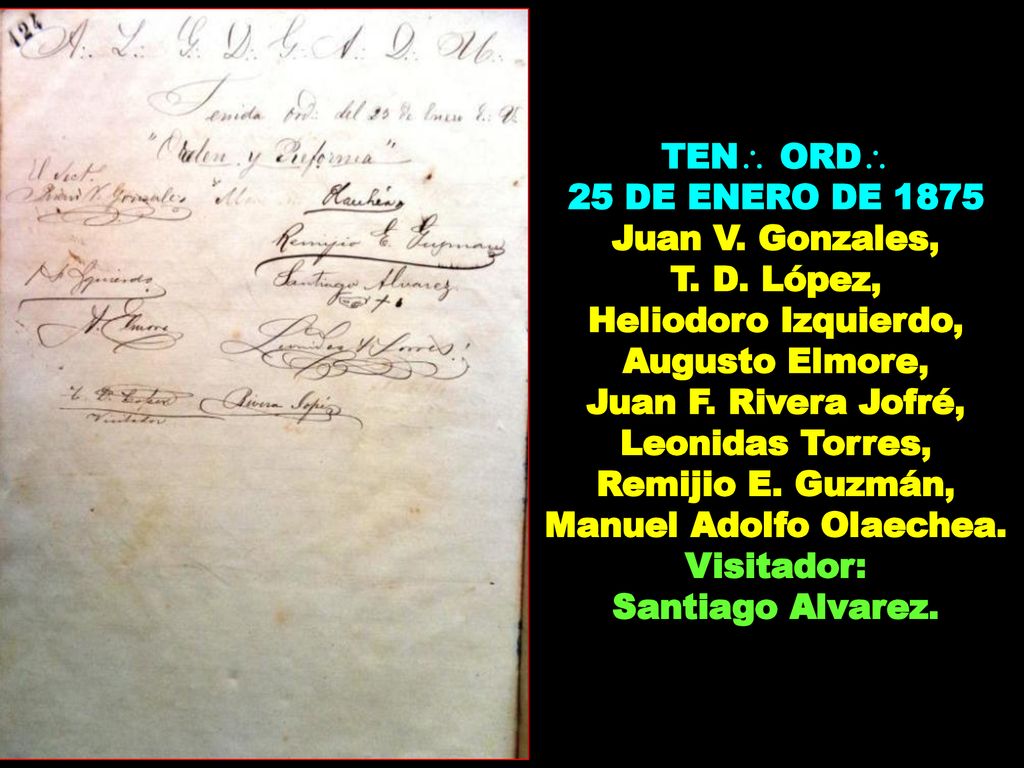 124
A∴ L∴ G∴ D∴ G∴ A∴ D∴ U∴
Tenida ord∴ del 25 de Enero d∴
"Orden y Reforma"
El Sect.
V. Gonzales
Remijio E. Guzman
Izquierdo
Santiago Alvarez
A. Elmore
Leonidas Torres
Visitador
Rivera Jofré
TEN∴ ORD∴
25 DE ENERO DE 1875
Juan V. Gonzales,
T. D. López,
Heliodoro Izquierdo,
Augusto Elmore,
Juan F. Rivera Jofré,
Leonidas Torres,
Remijio E. Guzmán,
Manuel Adolfo Olaechea.
Visitador:
Santiago Alvarez.